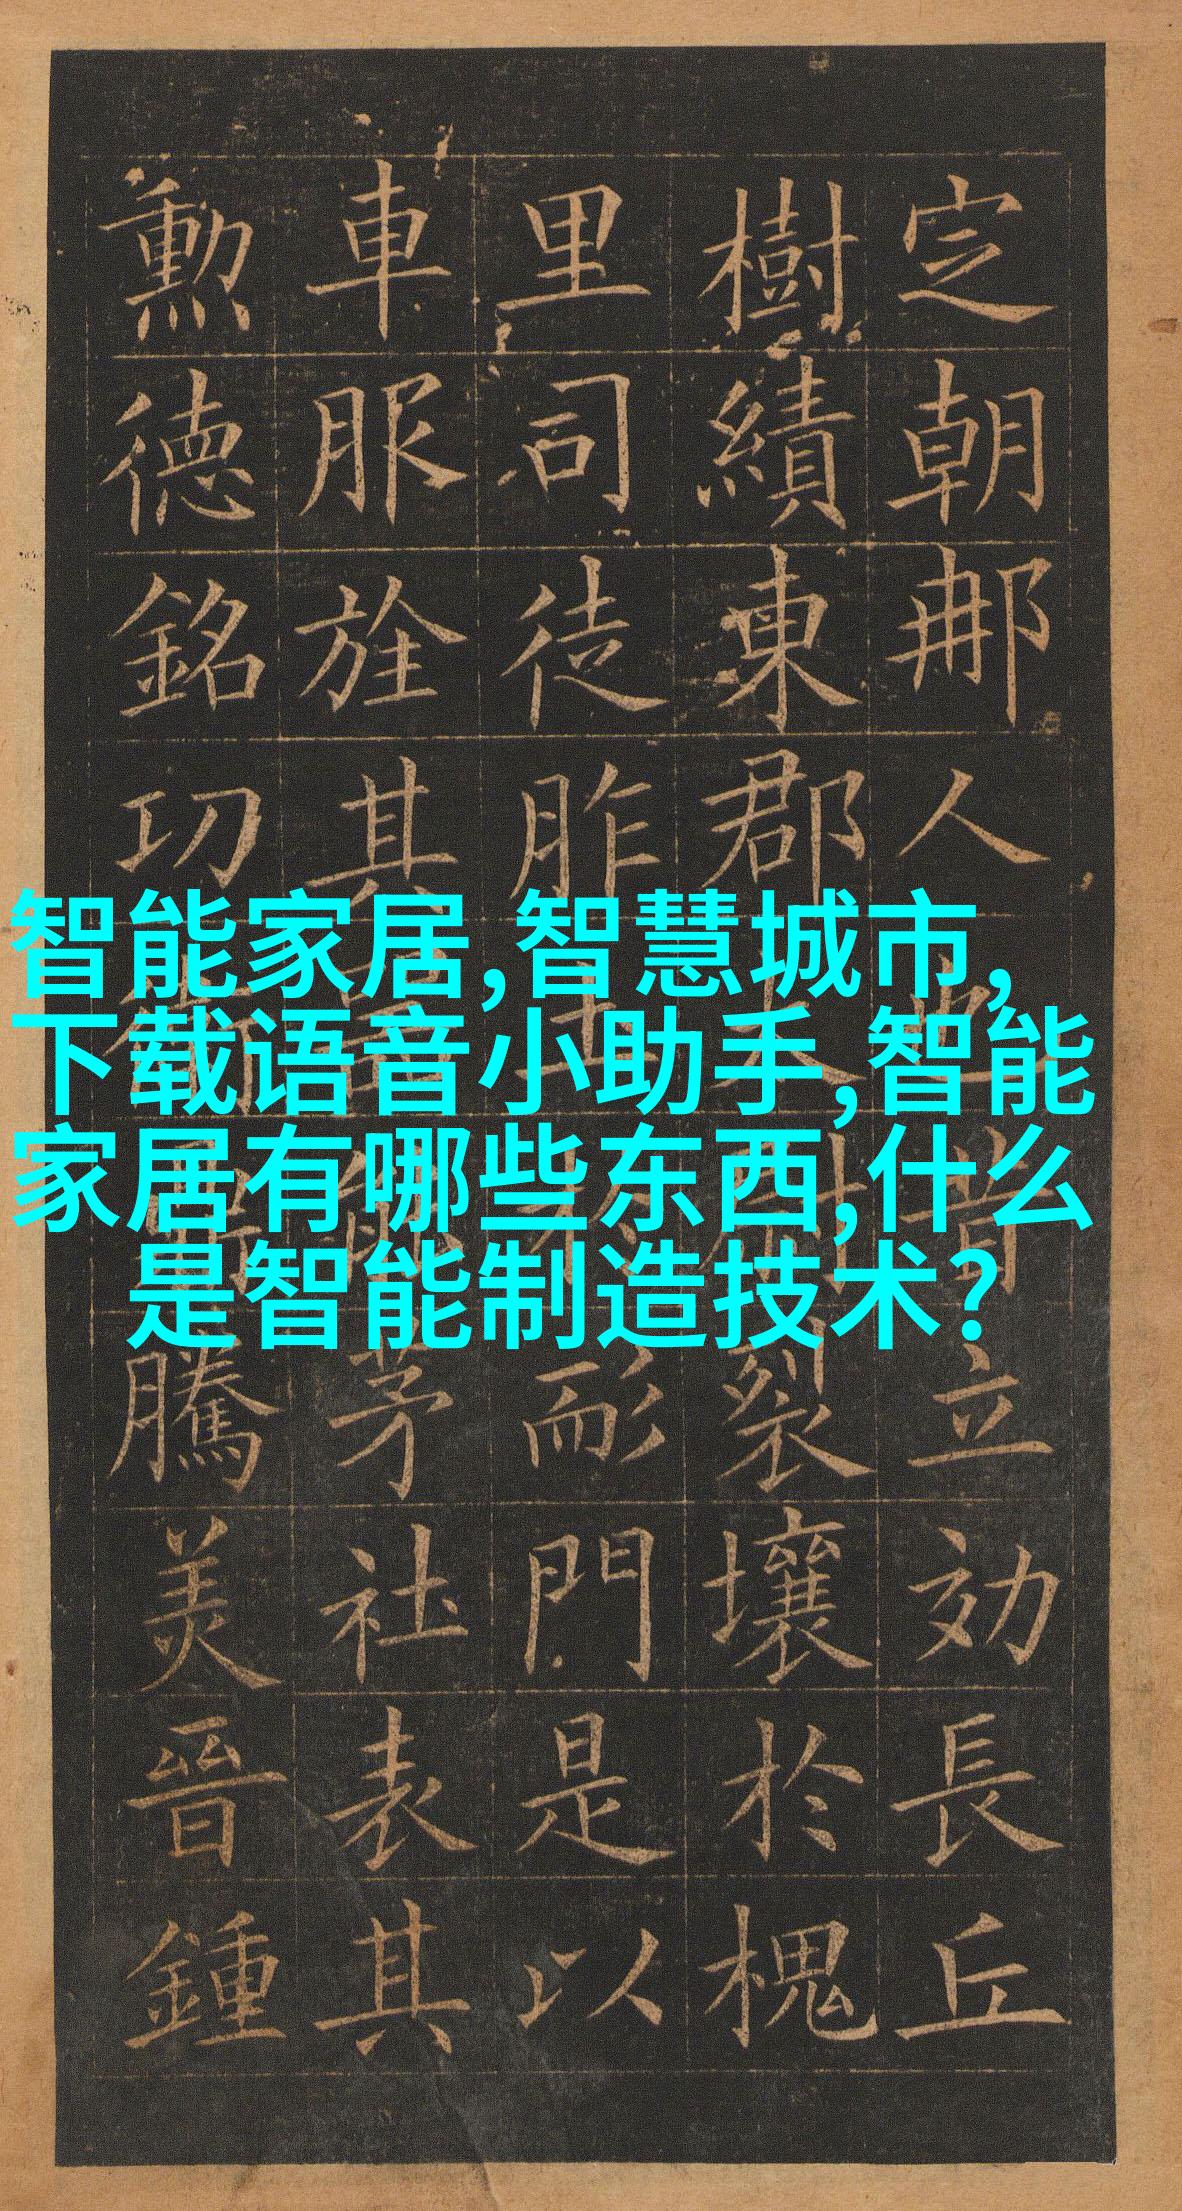 定朝那人也昔立効長丘
樹績東郡太尉裂壤於槐
里司徒胙土於耏門是以
車服旌其器能茅社表其
勳德銘功衛鼎騰美晉鍾
智能家居,智慧城市,
下载语音小助手,智能
家居有哪些东西,什么
是智能制造技术?